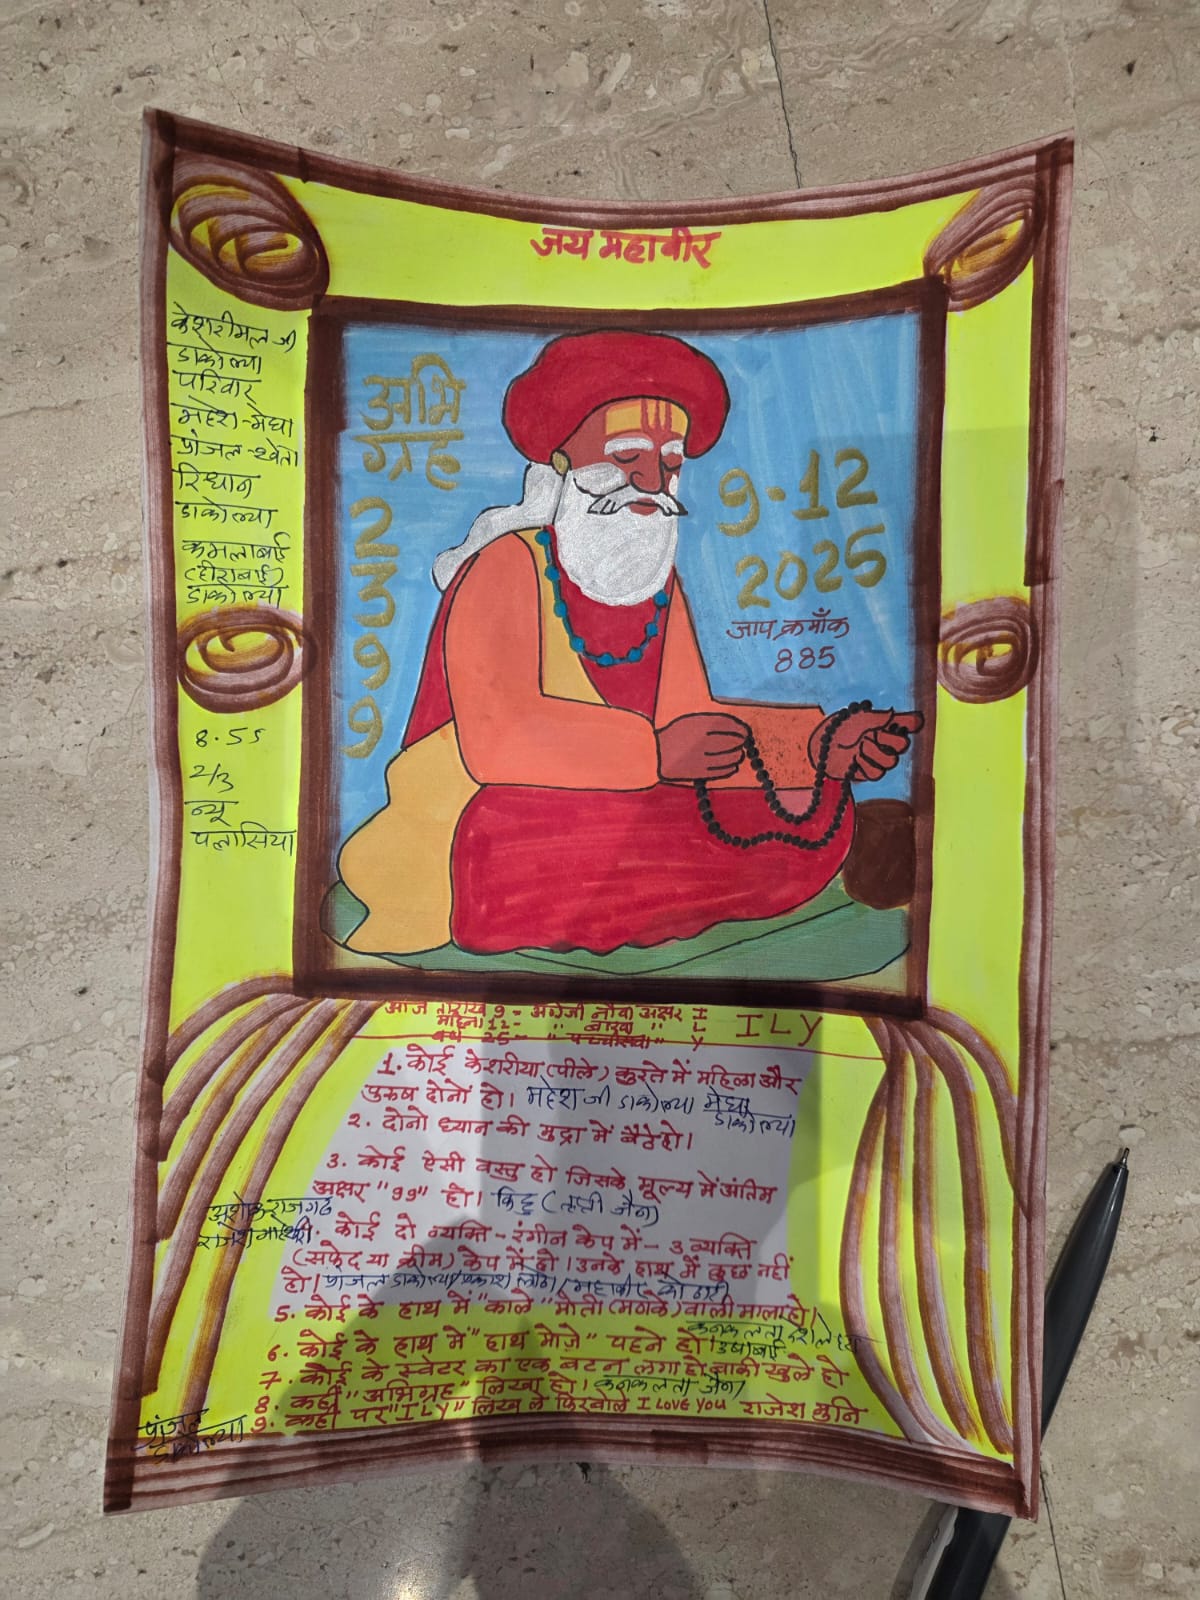 जय महावीर
केशरीमल जी
डाकोल्या
परिवार
महेश-मेघा
प्रांजल-श्वेता
रिधान
डाकोल्या
कमलाबाई
(हीराबाई)
डाकोल्या
8.55
2/3
न्यू
पलासिया
अभि
ग्रह
2
3
9
9
9.12
2025
जाप क्रमाँक
885
आज तारीख 9 = अंग्रेजी नौवा अक्षर I
महिना 12- " बारवा " L
वर्ष 25- " पच्चीसवा " Y
ILY
1. कोई केशरीया (पीले) कुरते में महिला और
पुरुष दोनों हो। महेश जी डाकोल्या मेघा
डाकोल्या
2. दोनो ध्यान की मुद्रा में बैठे हो।
3. कोई ऐसी वस्तु हो जिसके मूल्य में अंतिम
अक्षर "99" हो। किट्टु ( जैन)
अशोक राजगढ
राजेश माहेश्वरी
. कोई दो व्यक्ति - रंगीन केप में - 3 व्यक्ति
(सफेद या क्रीम) केप में हो। उनके हाथ में कुछ नहीं
हो। प्रांजल डाकोल्या/प्रकाश /महावीर कोठारी
5. कोई के हाथ में "काले" मोती (मणके) वाली माला हो।
कनकलता
6. कोई के हाथ में "हाथ मोज़े" पहने हो। उषाबाई
7. कोई के स्वेटर का एक बटन लगा हो बाकी खुले हो
8. कही "अभिग्रह" लिखा हो। कनकलता जैन
9. कही पर "ILY" लिख ले फिर बोले I LOVE YOU राजेश मुनि
प्रांजल
डाकोल्या